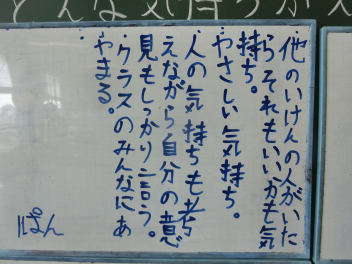 どんな気持ちが大
・他のいけんの人がいた
らそれもいいかも気
持ち。
・やさしい気持ち。
・人の気持ちも考
えながら自分の意
見もしっかり言う。
・クラスのみんなにあ
やまる。
ぱん